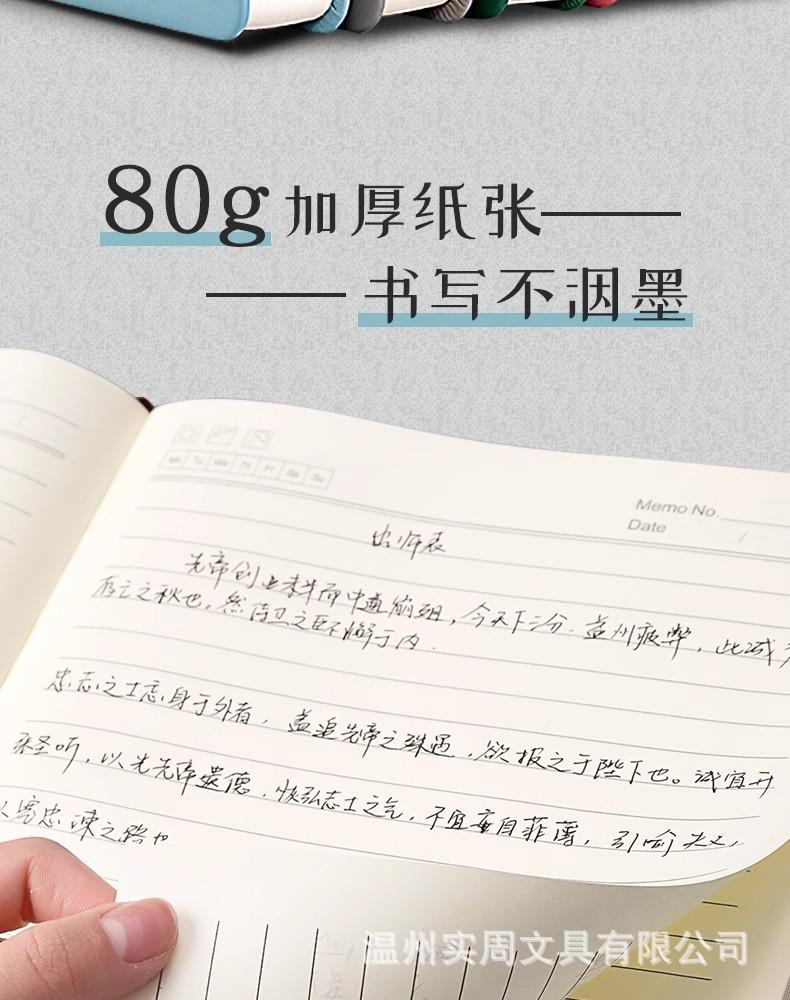 80g加厚纸张——
——书写不洇墨
Mo Tu We Th Fr Sa Su
Memo No.
Date /
出师表
先帝创业未半而中道崩殂，今天下三分．益州疲弊，此诚
存亡之秋也。然侍卫之臣不懈于内．
忠志之士忘身于外者，盖追先帝之殊遇，欲报之于陛下也。诚宜开
张圣听，以光先帝遗德，恢弘志士之气，不宜妄自菲薄，引喻失义，
以塞忠谏之路也
温州实周文具有限公司